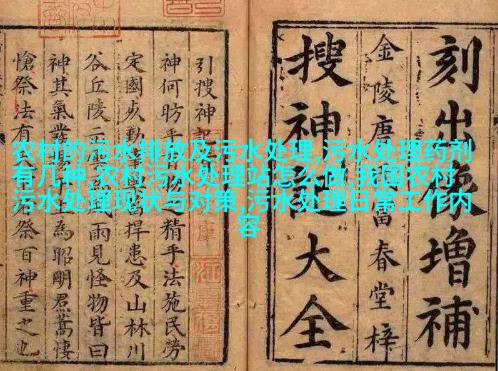 刻出像增補
金陵唐富春堂梓
搜神記大全
引搜神記
神何昉乎精乎法施民勞
定國以勤事捍患及山林川
谷丘陵風雨見怪物皆曰
神其氣發為昭明焄蒿悽
愴祭法有祭百神重之也
农村的污水排放及污水处理,污水处理药剂
有几种,农村污水处理站怎么做,我国农村
污水处理现状与对策,污水处理日常工作内
容